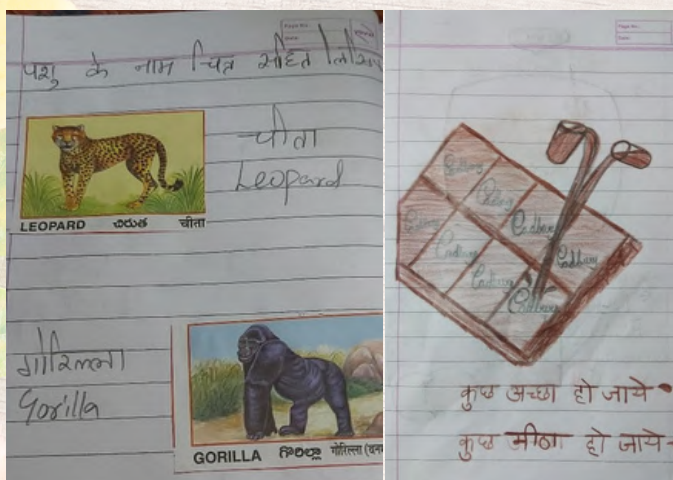 पशु के नाम चित्र सहित
चीता
Leopard
LEOPARD చిరుత चीता
गोरिल्ला
Gorilla
GORILLA గొరిల్లా गोरिल्ला
Cadbury
Cadbury
Cadbury
Cadbury
Cadbury
Cadbury
Cadbury
Cadbury
कुछ अच्छा हो जाये
कुछ मीठा हो जाये